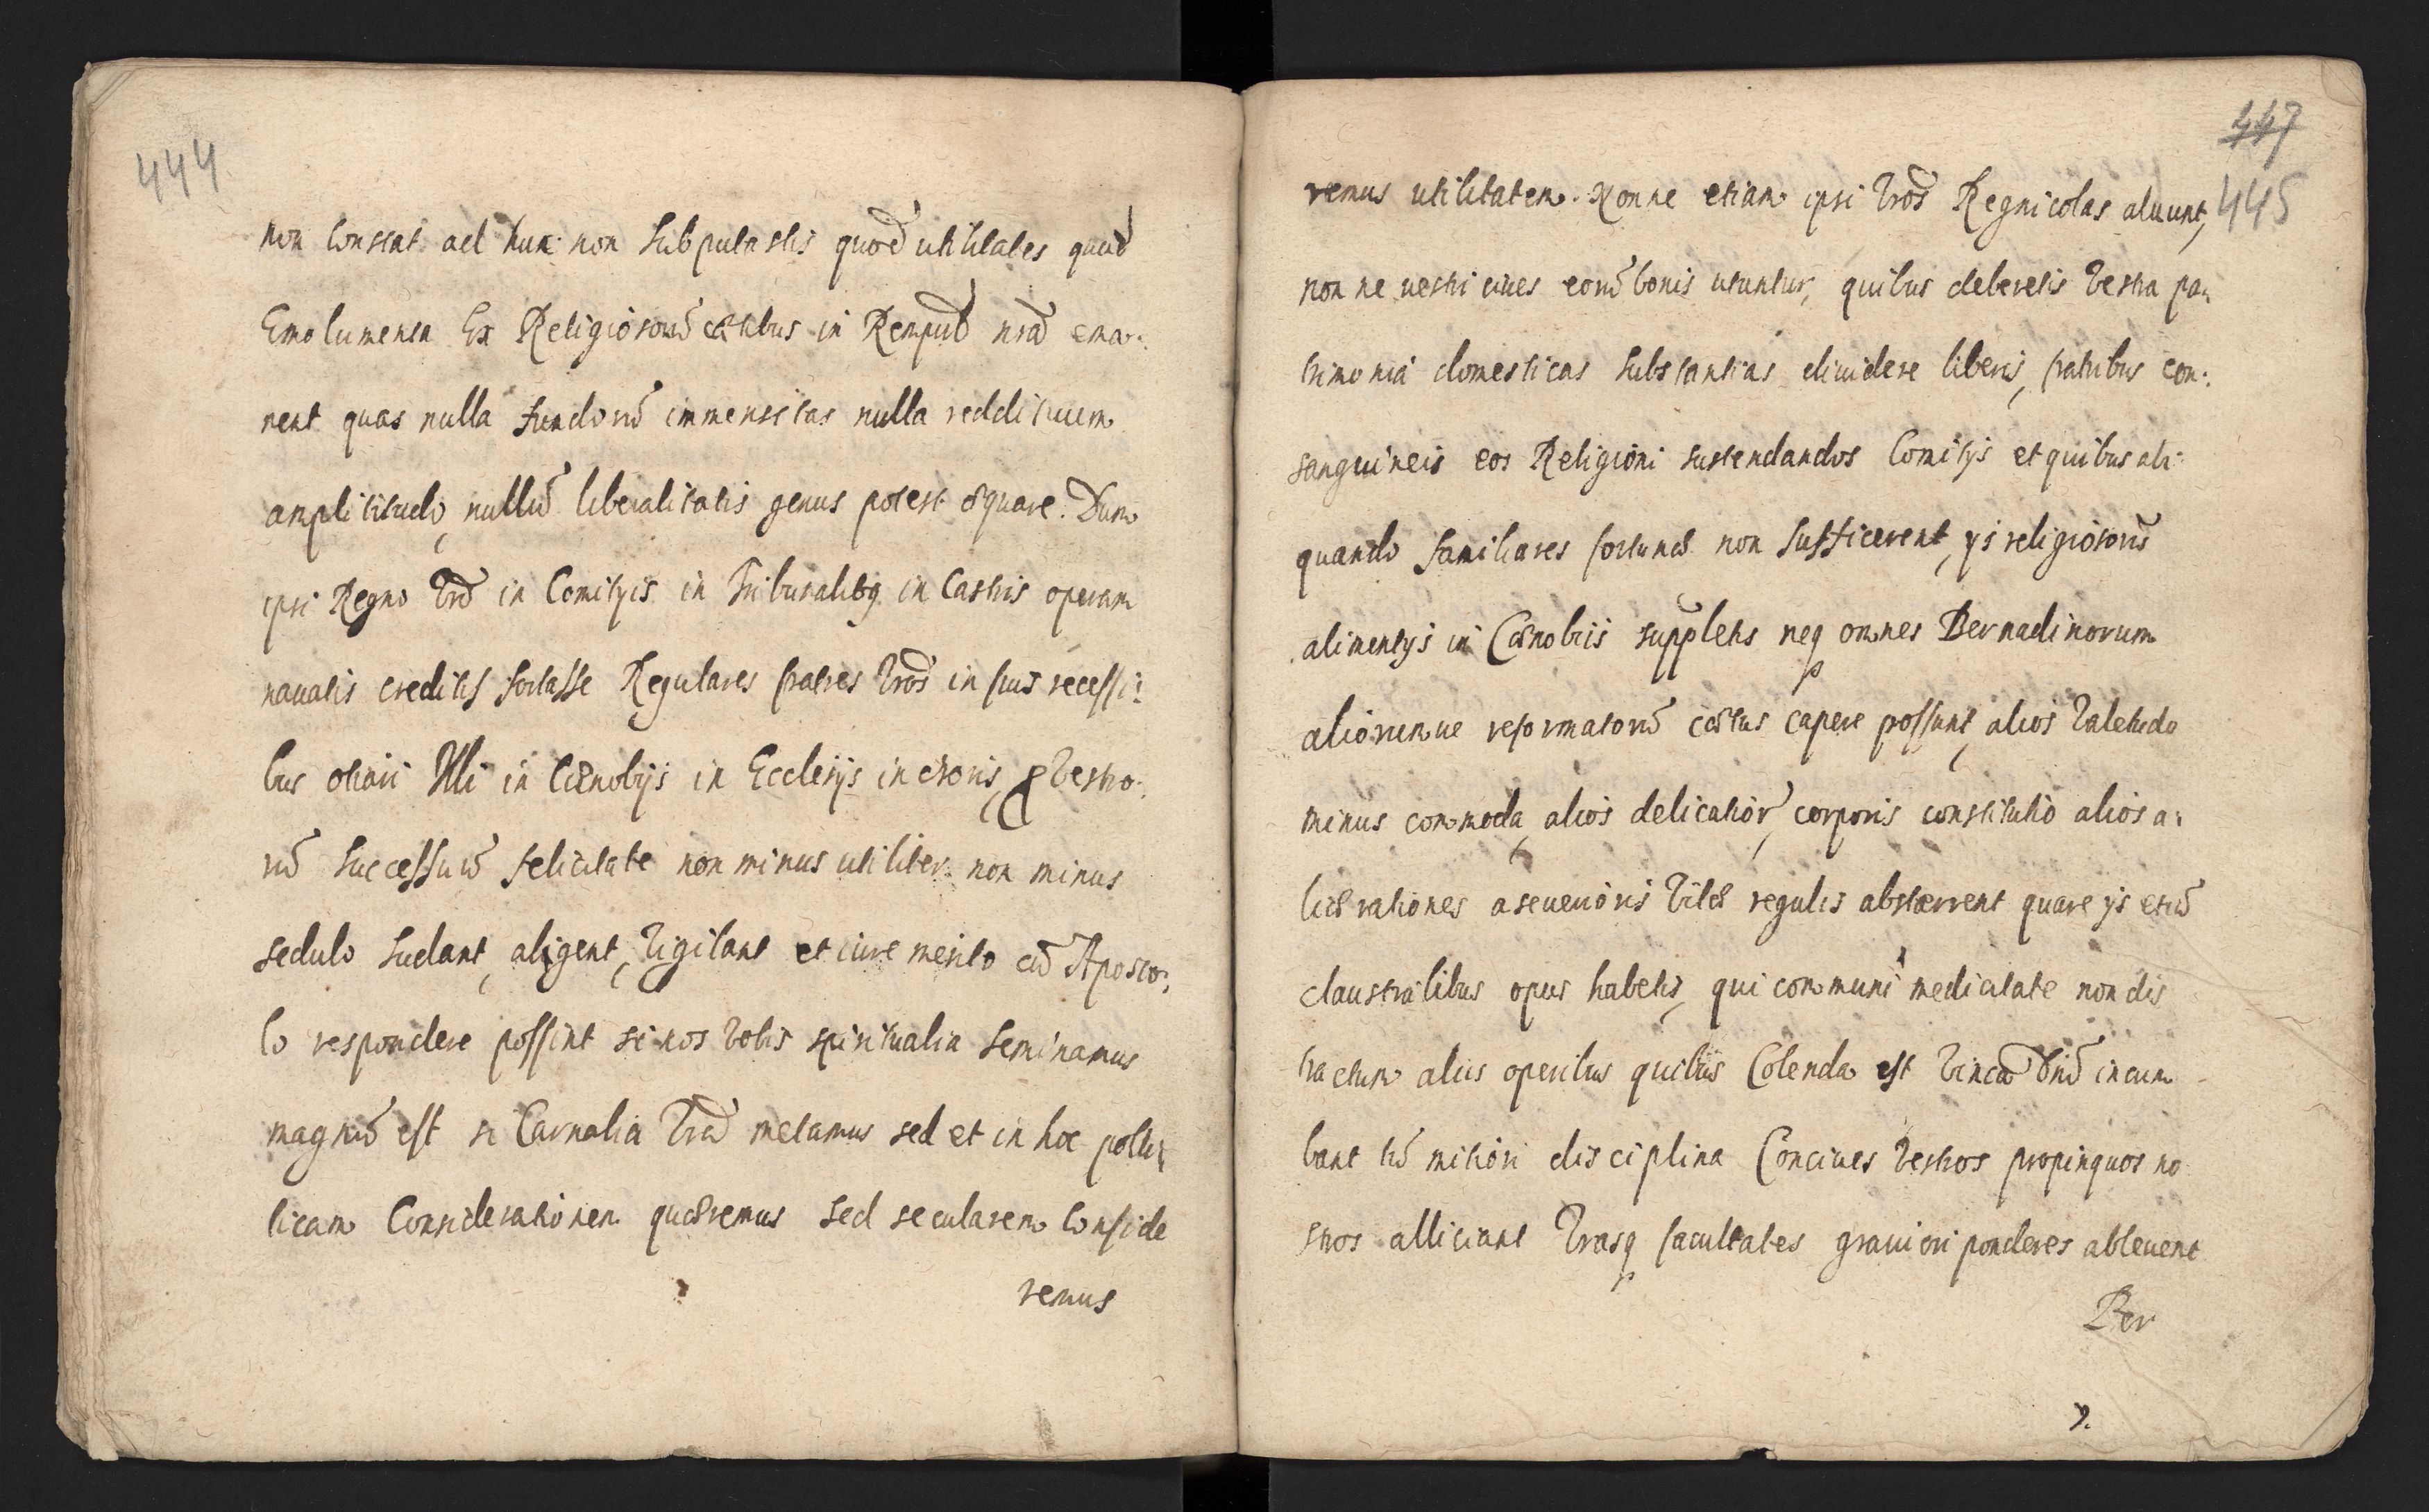 444
non constat adhuc non subputastis quod utilitates quod
Emolumenta Ex Religiosorũ cætibus in Rempub nrã ema-
nent quas nulla fundorũ immensitas nulla reddituum
amplititudo, nullũ liberalitatis genus potest æquare. Dum
ipsi Regno Vrõ in Comitys in Tribunalibq in Castris operam
navatis creditis fortasse Regulares fratres Vrõs in suis recessi-
bus otiari Illi in Cænobijs in Ecclesijs in choris, p Vestro-
rũ successuũ felicitate non minus utiliter non minus
sedulo sudant, algent, Vigilant et iure merito cũ Aposto-
lo respondere possint si nos Vobis spiritualia seminamus
magnũ est si Carnalia Vrã metamus sed et in hoc polli-
ticam Considerationem quæremus sed secularem conside
remus
447
445
remus utilitatem. Nonne etiam ipsi Vrõs Regnicolas aluunt,
non ne vestri cives eorũ bonis utuntur, quibus deberetis Vestra pa-
trimonia domesticas substantias dividere liberis, fratribus con-
sanguineis eos Religioni sustendandos Comitis et quibus ali-
quando familiares fortunæ non sufficerent, ys religiosorũ
alimentys in Cænobiis suppletis neq omnes Bernadinorum
aliorumue reformatorũ cætus capere possunt, alios Valetudo
minus commoda, alios delicatior, corporis constitutio alios a-
liæ rationes a severioris Vitæ regulis absterrent quare ys etiã
claustralibus opus habetis, qui communi mediatate non dis
tractum aliis operibus quibus Colenda est Vinea Dnĩ incum
bant tũ mitiori disciplina Concives Vestros propinquos no
stros alliciant Vrasq facultates graviori ponderes ablevent
Ber